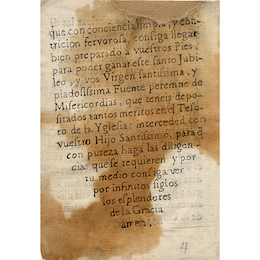 que con conciencia limpia, y con-
tricion fervorosa, consiga llegar
bien preparado à vuestros Pies,
para poder ganar este santo Jubi-
leo, y vos Virgen santissima, y
piadosissima Fuente peremne de
Misericordias, que teneis depo-
sitados santos meritos en el Teso-
ro de la Yglesia: interceded con
vuestro Hijo Santissimo, para q̃
con pureza haga las diligen-
cias, que se requieren, y por
tu medio consiga ver
por infinitos siglos
los esplendores
de la Gracia
amen.
4